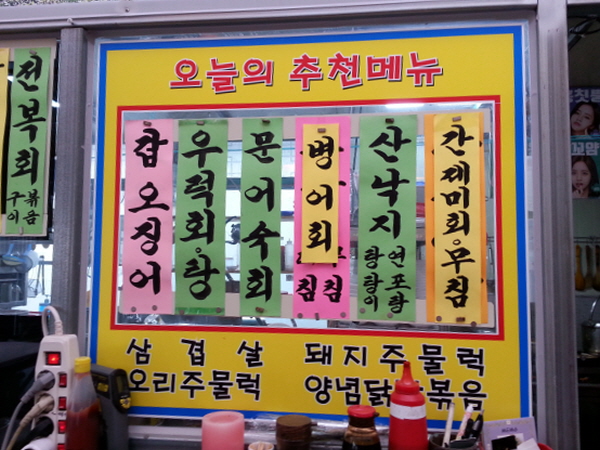 오늘의 추천메뉴
전복회
구이
볶음
갑오징어
우럭회·탕
문어숙회
병어회
침
침
산낙지
탕탕이
연포탕
간제미회·무침
삼겹살 돼지주물럭
오리주물럭 양념닭 볶음